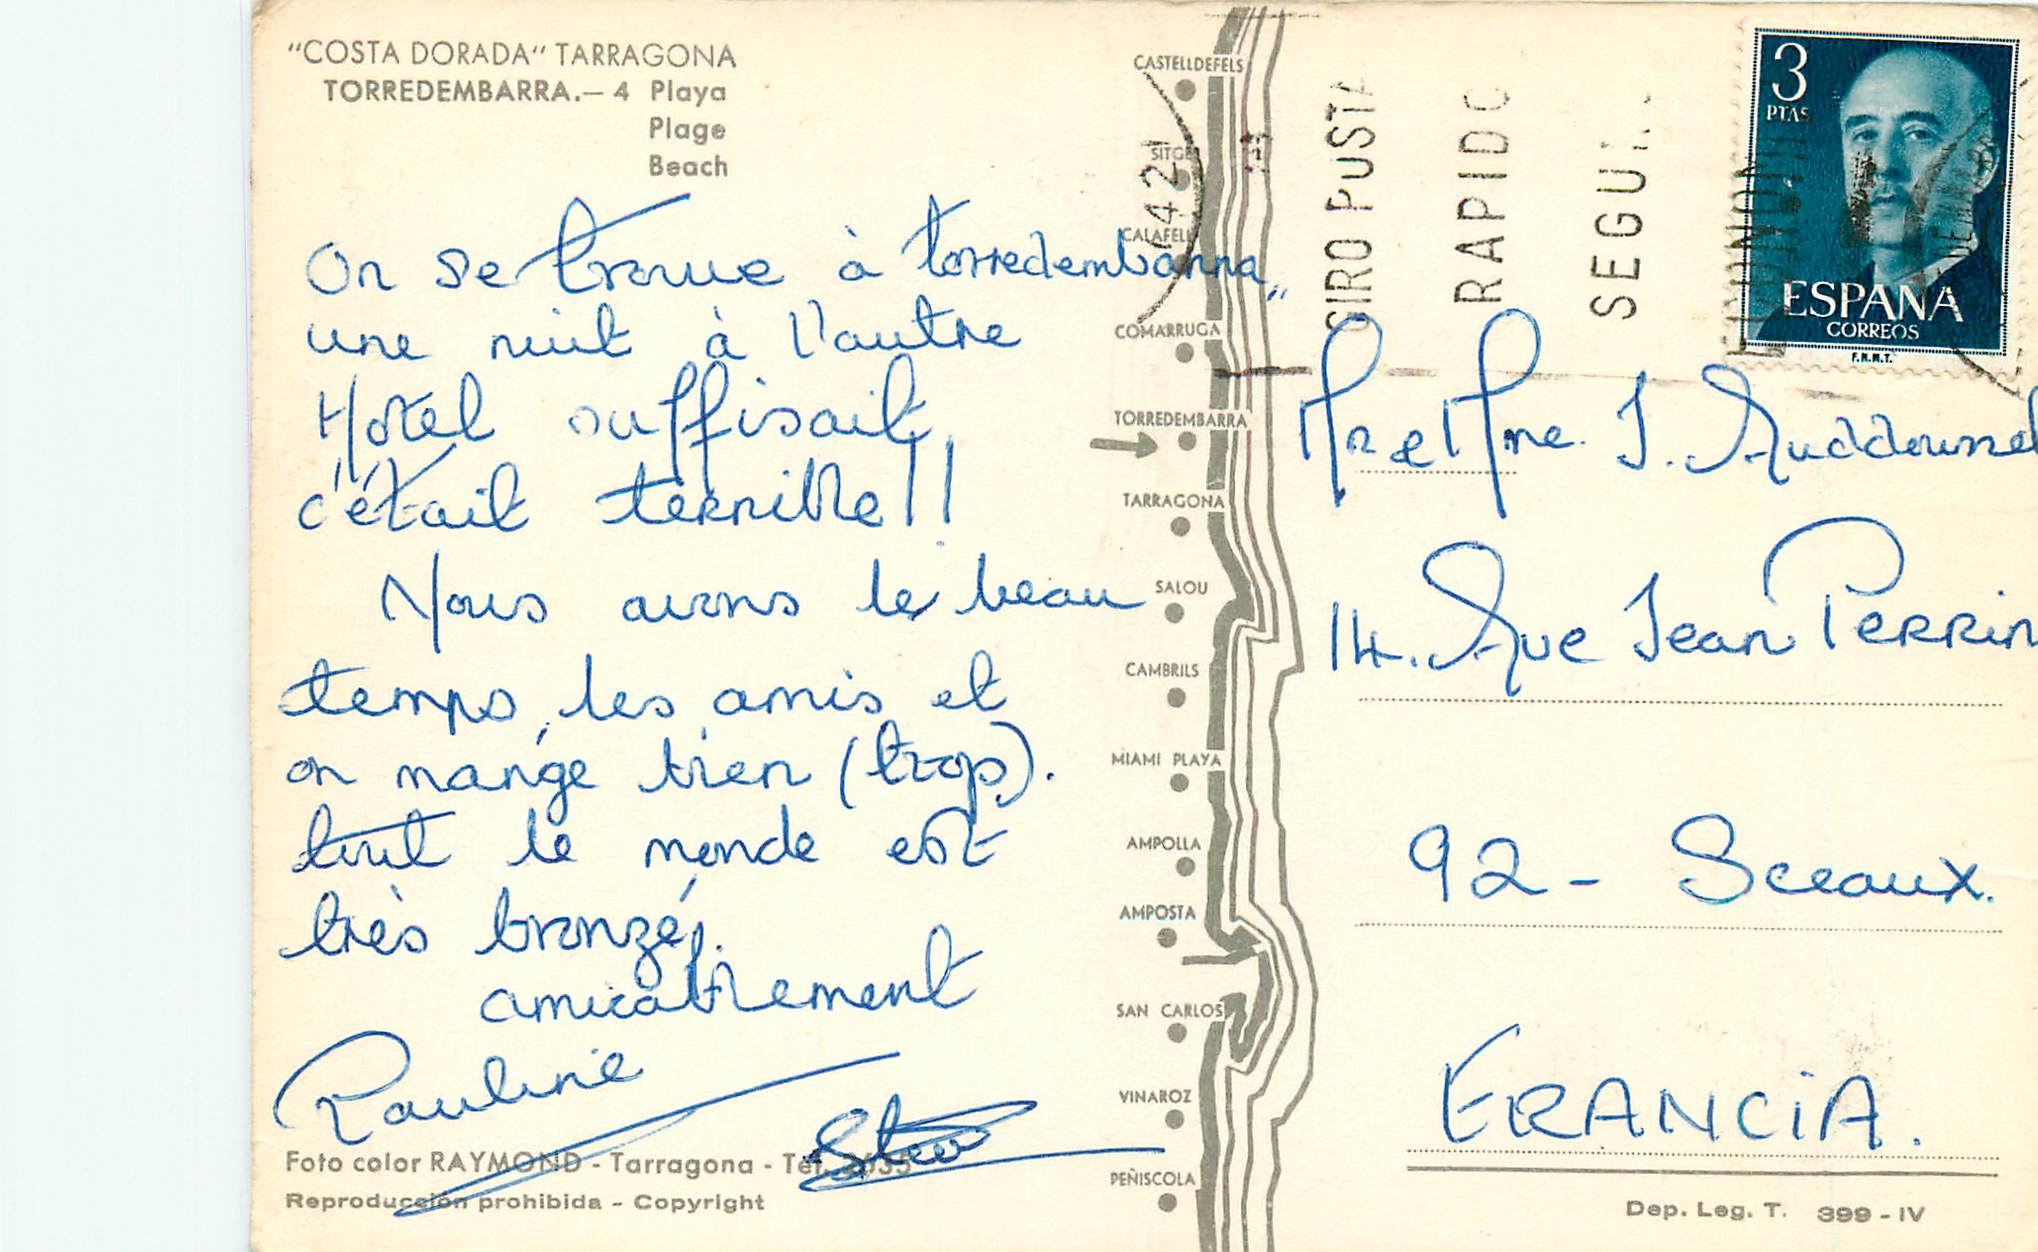 "COSTA DORADA" TARRAGONA
TORREDEMBARRA.— 4 Playa
Plage
Beach
On se trouve à torredembarra,,
une nuit à l'autre
Hôtel suffisait,
c'était terrible!!
Nous avons le beau
temps, les amis et
on mange bien (trop).
tout le monde est
très bronzé.
amicalement
Pauline
Foto color RAYMOND - Tarragona - Tel.
Reproducción prohibida - Copyright
CASTELLDEFELS
SITGES
CALAFELL
COMARRUGA
TORREDEMBARRA
TARRAGONA
SALOU
CAMBRILS
MIAMI PLAYA
AMPOLLA
AMPOSTA
SAN CARLOS
VINAROZ
PEÑISCOLA
GIRO POSTA
RAPIDO
SEGU
3
PTAS
ESPAÑA
CORREOS
F.N.M.T.
Mr e Mme. J.
14. Rue Jean Perrin
92 - Sceaux.
FRANCIA.
Dep. Leg. T. 399 - IV